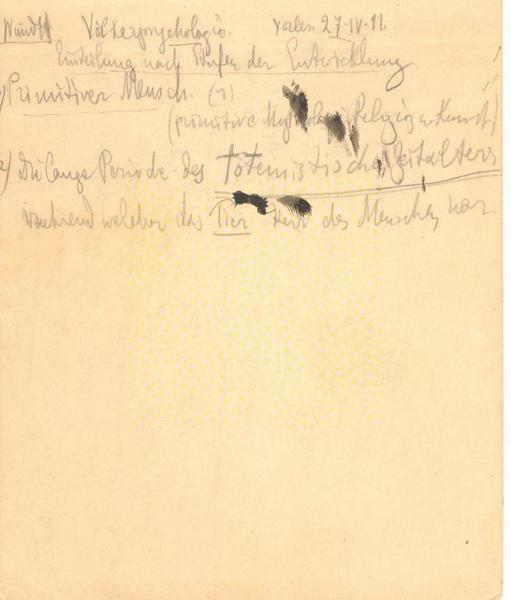 Wundt Völkerpsychologie. Vorles. 27-IV-12
Einteilung nach Stufen der Entwicklung
1) Primitiver Mensch. (1).
(primitive Mythologie, Religion u. Kunst)
2) Die lange Periode des totemistischen Zeitalters
während welcher das Tier Herr des Menschen war